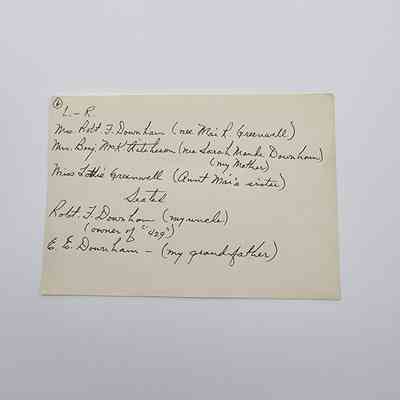 L. - R.
Mrs. Robt. F. Downham (nee Mai R. Greenwell)
Mrs. Benj. McK. Hutcheson (nee Sarah Downham)
(my Mother)
Miss Lottie Greenwell (Aunt Mai's sister)
Seated
Robt. F. Downham (my uncle)
(owner of "429")
E. E. Downham - (my grandfather)